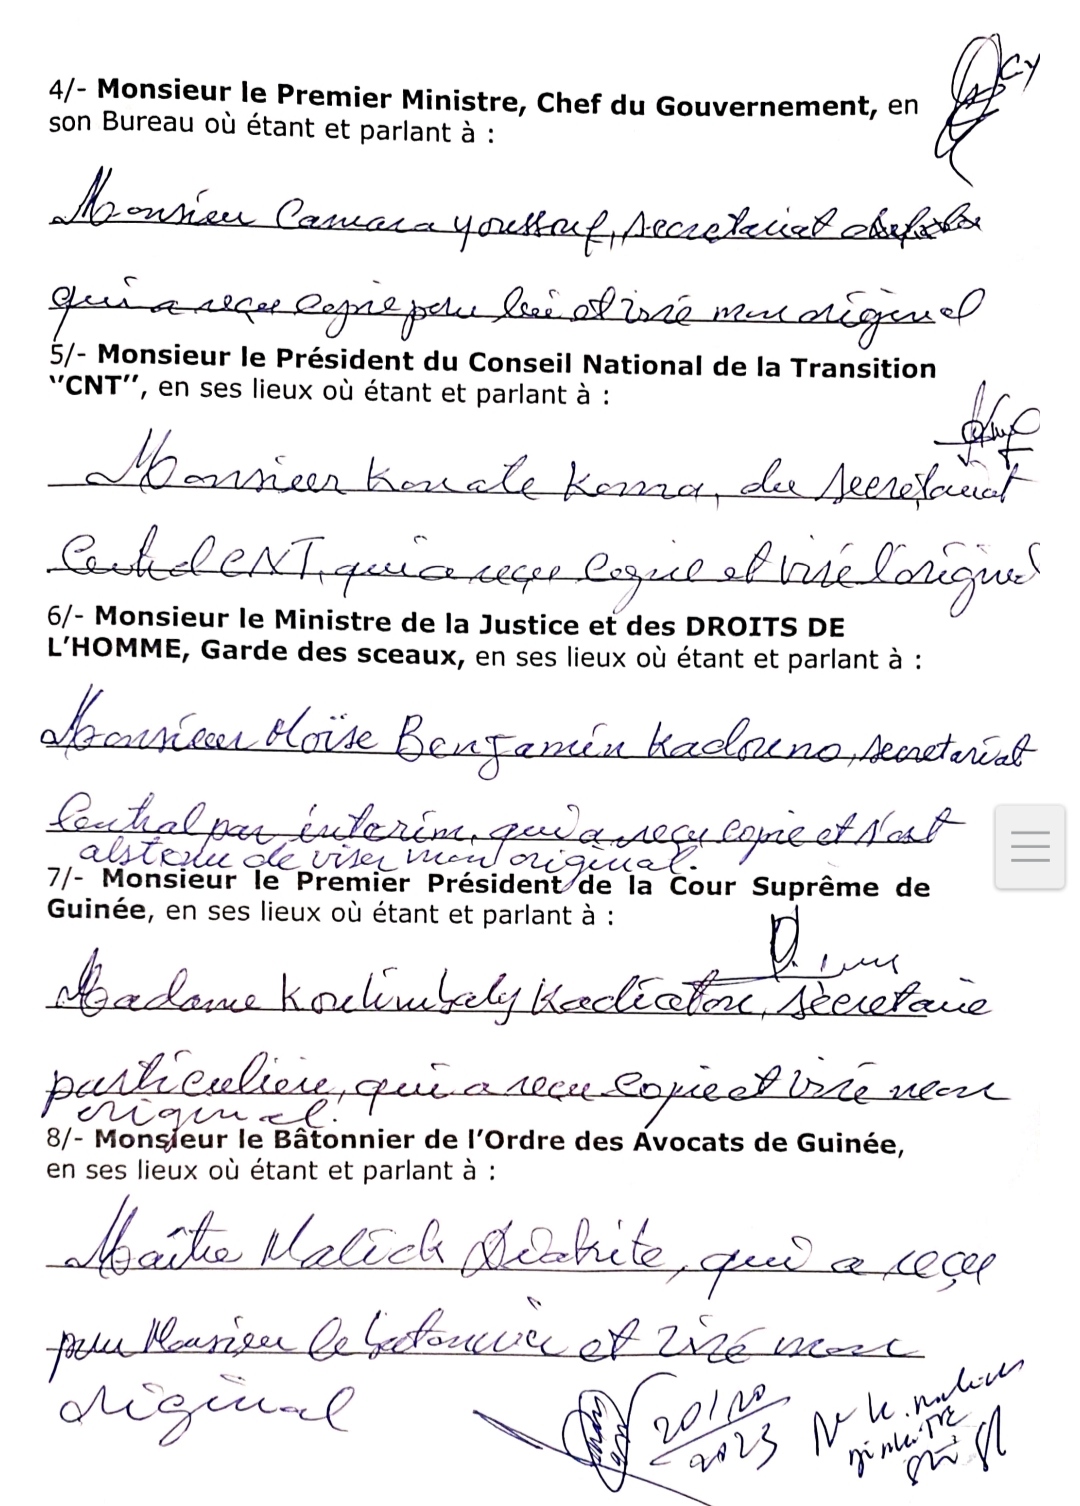 CY
4/- Monsieur le Premier Ministre, Chef du Gouvernement, en
son Bureau où étant et parlant à :
Monsieur Camara Youssouf, secretariat
qui a reçu copie pour lui et visé mon original
5/- Monsieur le Président du Conseil National de la Transition
‘’CNT’’, en ses lieux où étant et parlant à :
Monsieur Konate Koma, du secretariat
Central CNT, qui a reçu copie et visé l'original
6/- Monsieur le Ministre de la Justice et des DROITS DE
L’HOMME, Garde des sceaux, en ses lieux où étant et parlant à :
Monsieur Moïse Benjamin Kadouno, secretariat
Central par interim, qui a reçu copie et s'est
abstenu de viser mon original.
7/- Monsieur le Premier Président de la Cour Suprême de
Guinée, en ses lieux où étant et parlant à :
Madame Koulimbaly Kadiatou, secretaire
particulière, qui a reçu copie et visé mon
original.
8/- Monsieur le Bâtonnier de l’Ordre des Avocats de Guinée,
en ses lieux où étant et parlant à :
Maître Malick Diakite, qui a reçu
pour Monsieur le batonnier et visé mon
original
20/10
2023